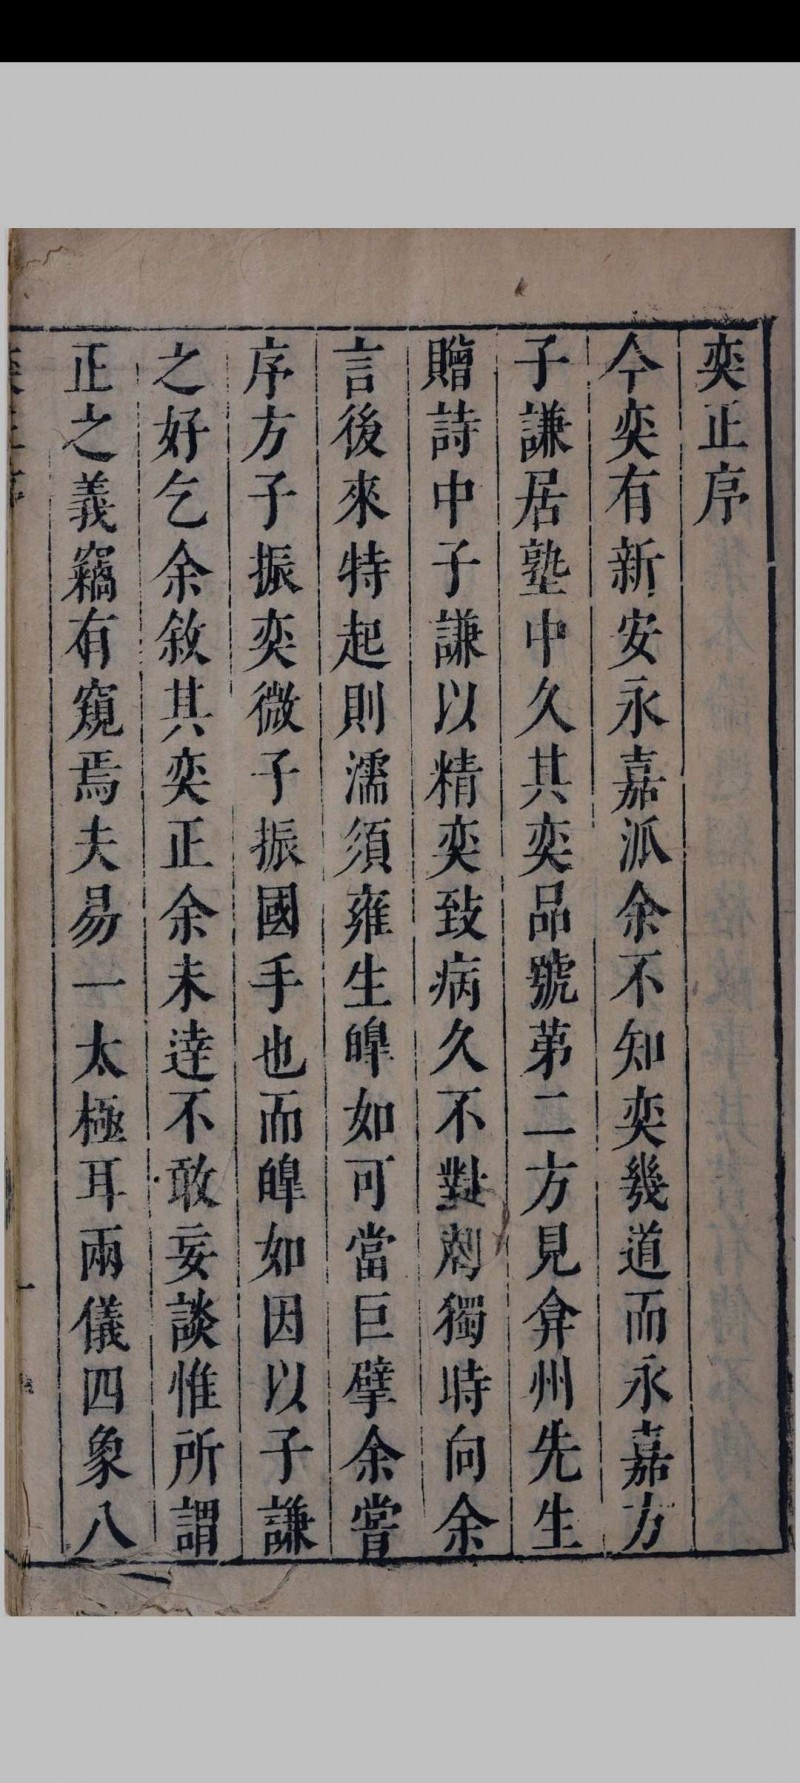 奕正序
今奕有新安永嘉派余不知奕幾道而永嘉方
子謙居塾中久其奕品號第二方見弇州先生
贈詩中子謙以精奕致病久不對剤獨時向余
言後來特起則濡須雍生皡如可當巨擘余嘗
序方子振奕微子振國手也而皡如因以子謙
之好乞余敘其奕正余未逹不敢妄談惟所謂
正之義竊有窺焉夫易一太極耳兩儀四象八